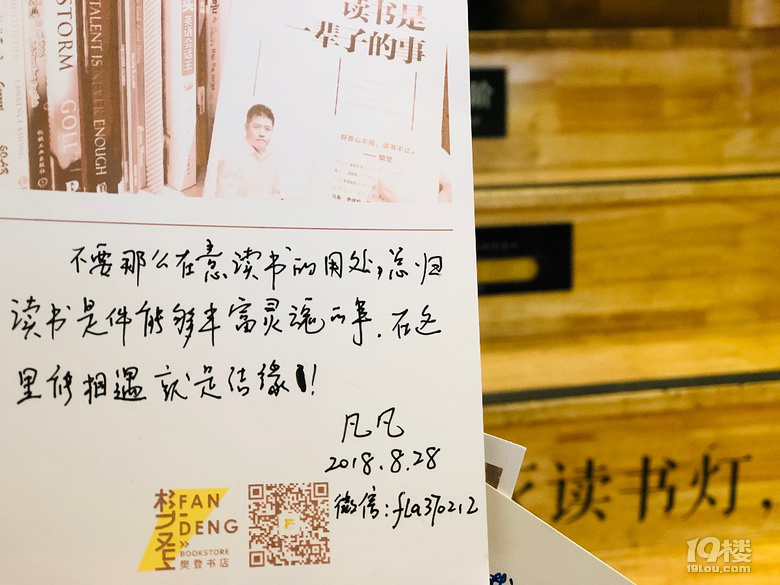 STORM
GOLL
TALENT IS NEVER ENOUGH
英语会话王
读书是
一辈子的事
好奇心不死，读书不止。
——樊登
不要那么在意读书的用处，总归
读书是件能够丰富灵魂的事。在这
里能相遇就是结缘！
凡凡
2018.8.28
微信：fla370212
FAN
DENG
BOOKSTORE
樊登书店
读书灯，
19楼
19lou.com